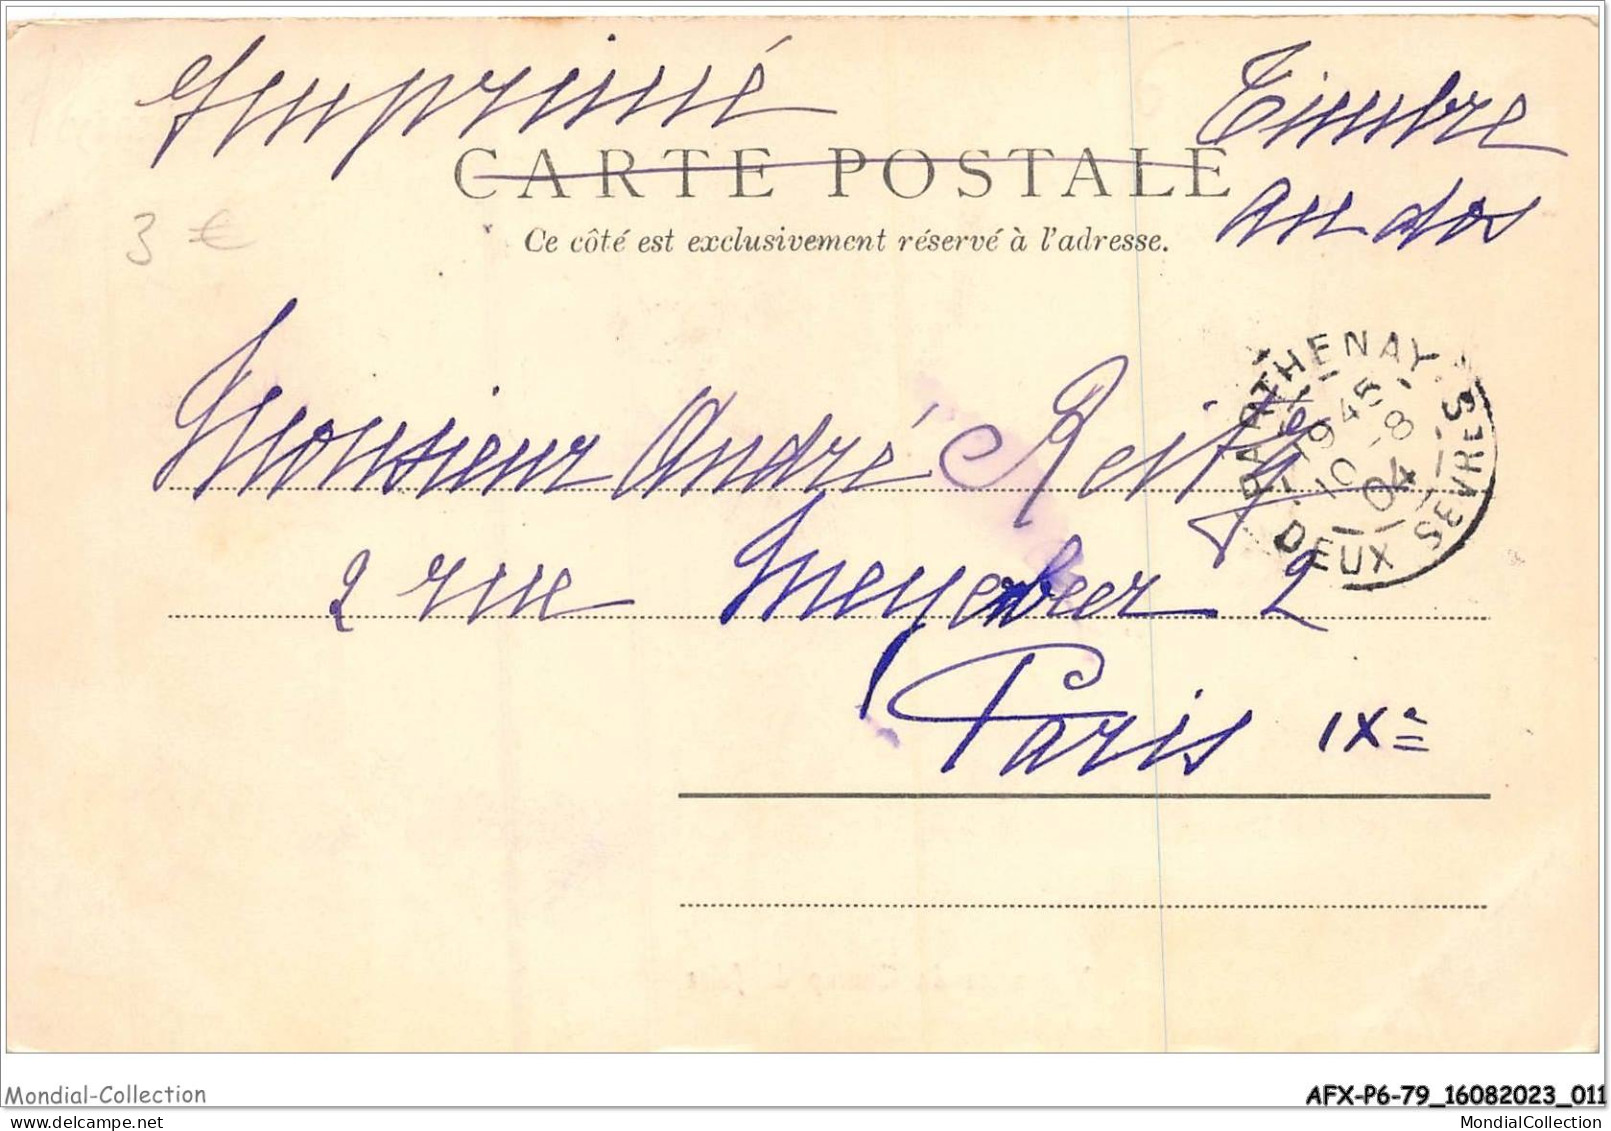 Imprimé
Timbre
au dos
CARTE POSTALE
Ce côté est exclusivement réservé à l'adresse.
3 €
PARTHENAY
DEUX SEVRES
1945
10 -8
04
Monsieur André
2 rue Meyerbeer 2
Paris IXe
Mondial-Collection
AFX-P6-79_16082023_011
MondialCollection.com
MondialCollection